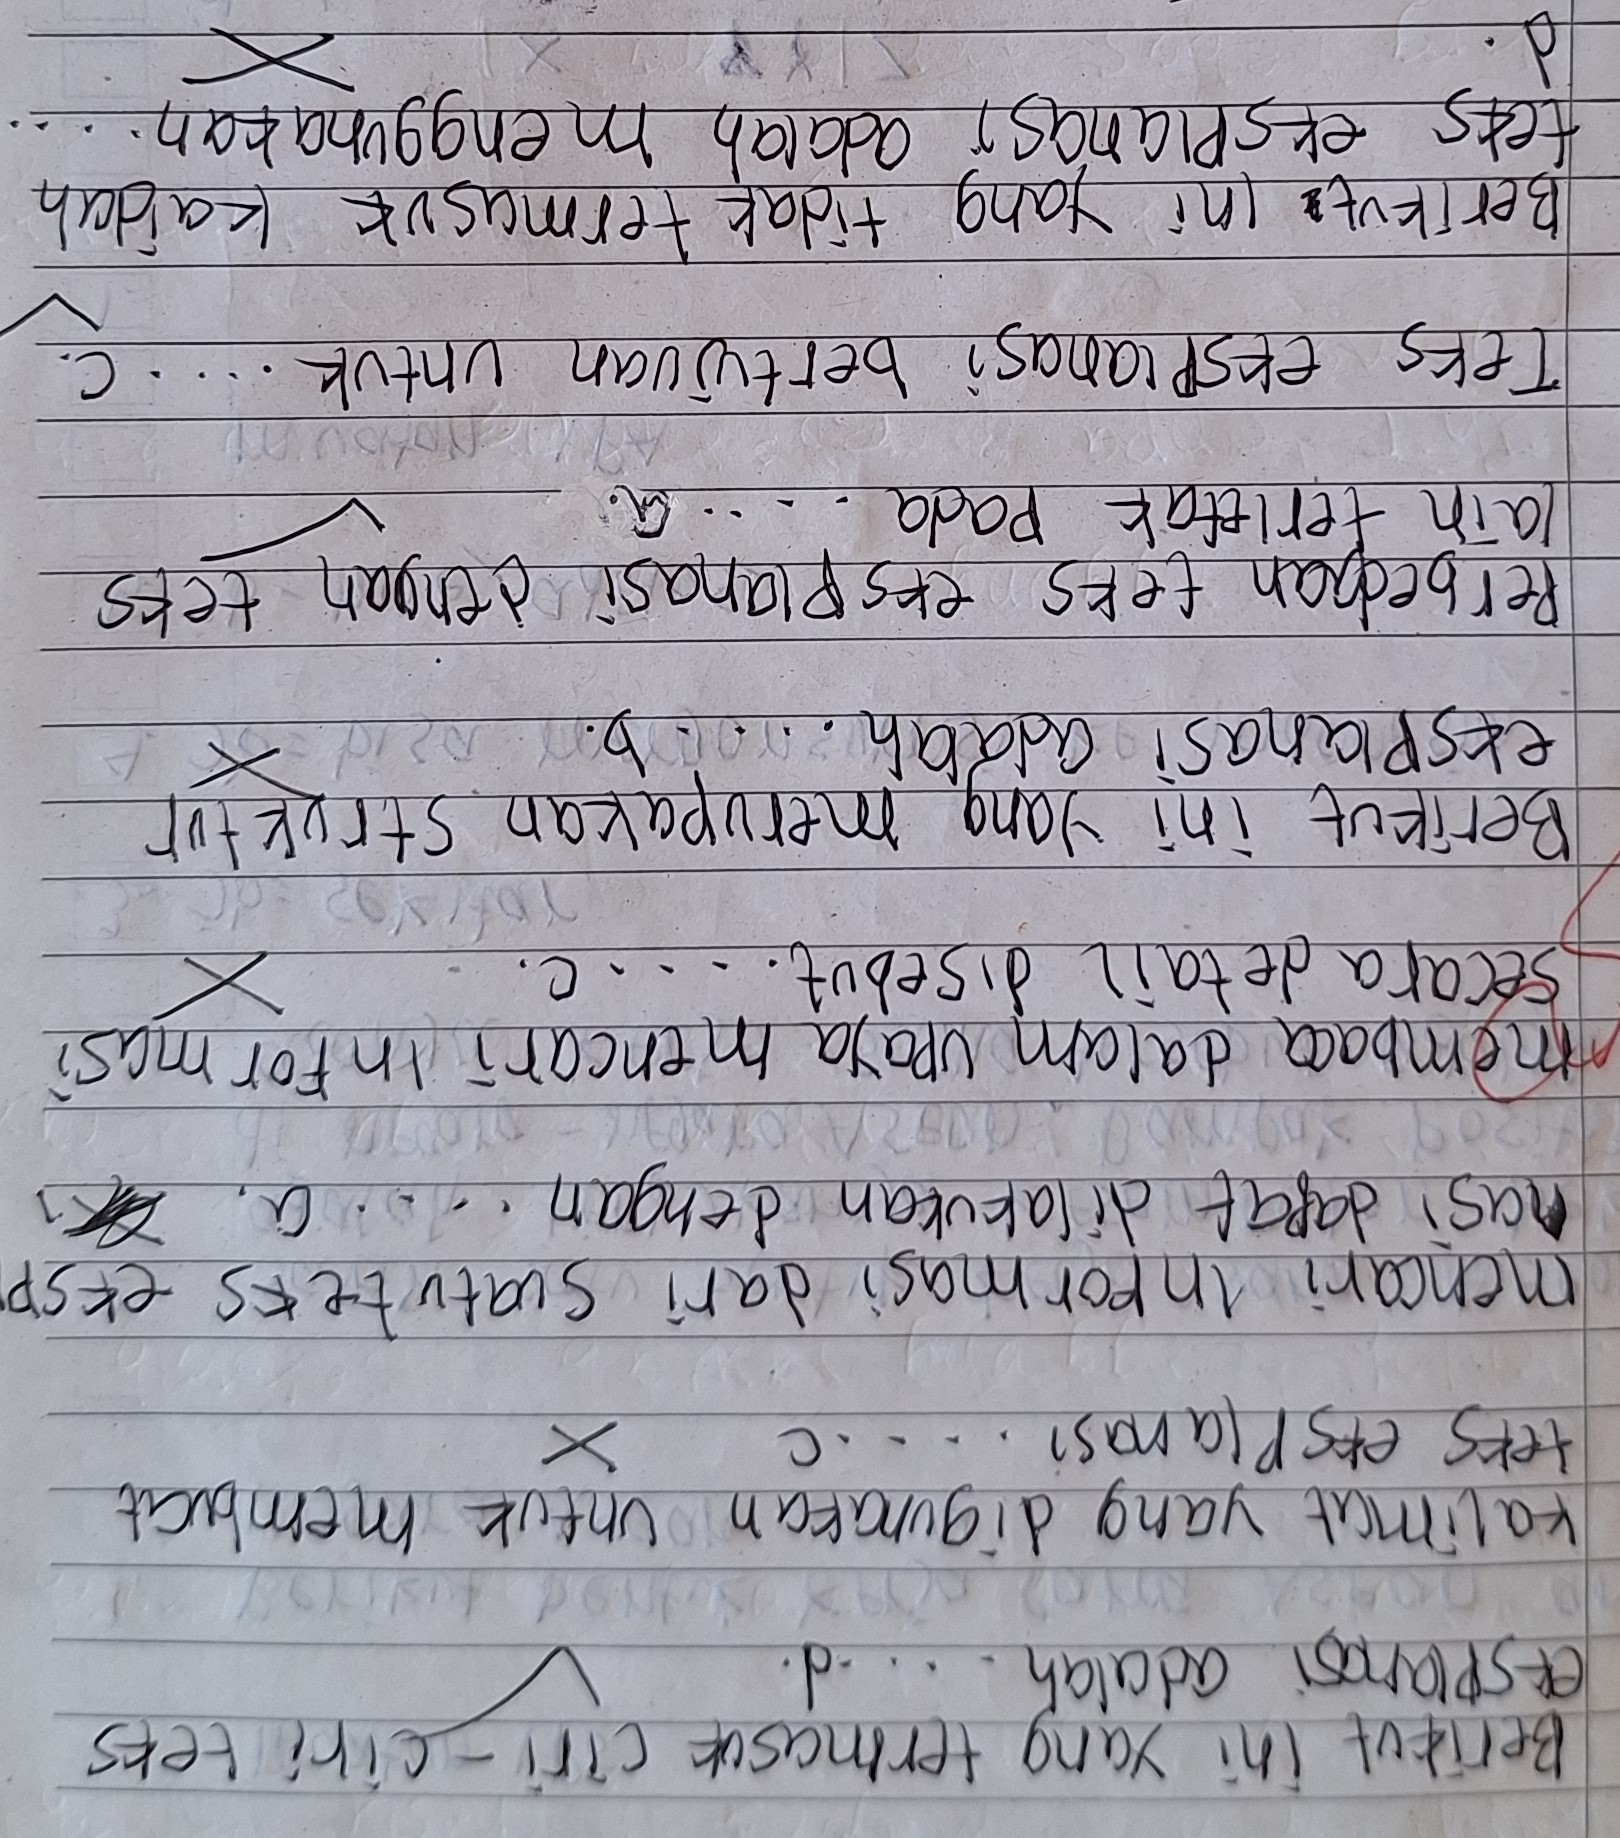 Berikut ini yang termasuk ciri-ciri teks
eksplanasi adalah.....d.
kalimat yang digunakan untuk membuat
teks eksplanasi.....c
mencari informasi dari suatu teks eksp
nasi dapat dilakukan dengan.....a.
membaca dalam upaya mencari informasi
secara detail disebut.....c.
Berikut ini yang merupakan struktur
eksplanasi adalah.....b.
Perbedaan teks eksplanasi dengan teks
lain terletak pada.....a.
Teks eksplanasi bertujuan untuk.....c.
Berikut ini yang tidak termasuk kaidah
teks eksplanasi adalah menggunakan....
d.